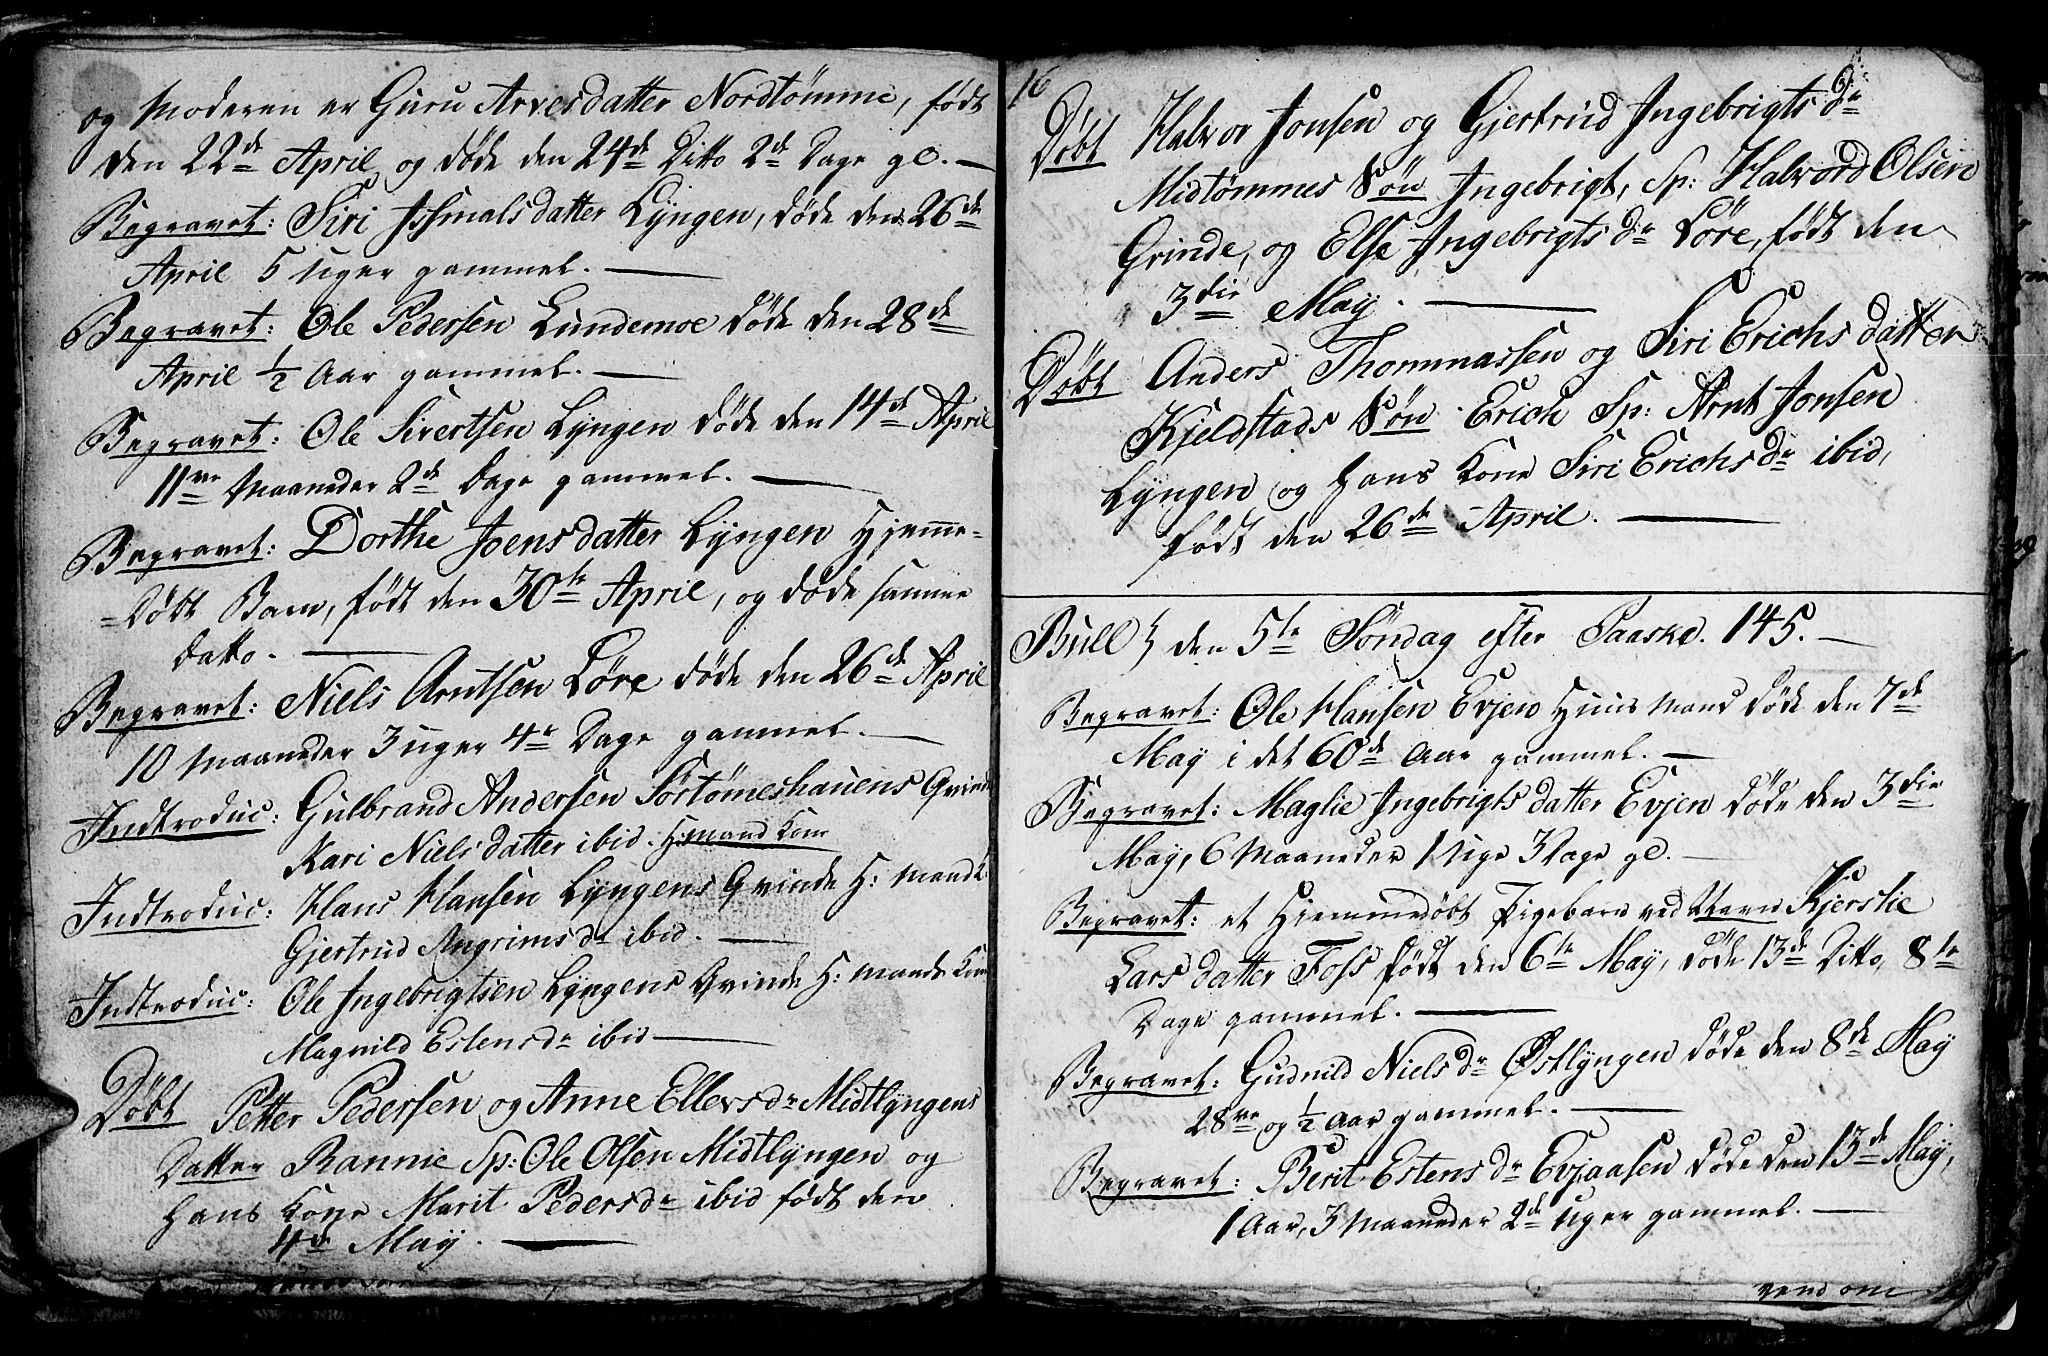 og Moderen er Guru Arvesdatter Nordtømme, født
den 22de April, og døde den 24de Ditto 2de Dage gl. —
Begravet: Siri Issmalsdatter Lÿngen, døde den 26de
April 5 Uger gammel. —
Begravet: Ole Pedersen Lundemoe døde den 28de
April ½ Aar gammel. —
Begravet: Ole Sivertsen Lÿngen døde den 14de April
11ve Maaneder 2de Dage gammel. —
Begravet: Dorthe Joensdatter Lÿngen Hjemme-
=Døbt Barn, født den 30te April, og døde samme
Datto. —
Begravet: Niels Arntsen Løre døde den 26de April
10 Maaneder 3 uger 4re Dage gammel. —
Indtroduc: Gulbrand Andersen Sørtømeshauens Qvinde
Kari Nielsdatter ibid. H:mand Kone
Indtroduc: Hans Hansen Lÿngens Qvinde H: Mands
Gjertrud Angrims dr ibid. —
Indtroduc: Ole Ingebrigtsen Lÿngens Qvinde H: Mands Kone
Magnild Estens dr ibid —
Døbt Petter Pedersen og Anne Ellevs dr Midtlÿngens
Datter Rannie Sp: Ole Olsen Midtlÿngen og
hans Kone Marit Peders dr ibid født den
4de Maÿ. —
16
Døbt Halvor Jonsen og Gjertrud Ingebrigts dr
Midtømmes Søn Ingebrigt, Sp: Halvord Olsen
Grinde, og Else Ingebrigts dr Løre, født den
3die Maÿ. —
Døbt Anders Thommassen og Siri Erichs datter
Kjeldstads Søn Erich Sp: Arnt Jonsen
Lÿngen og hans Kone Siri Erichs dr ibid,
født den 26de April. —
Bull den 5te Søndag efter Paaske. 145. —
Begravet: Ole Hansen Evjen Huusmand døde den 7de
Maÿ i det 60de Aar gammel. —
Begravet: Maglie Ingebrigts datter Evjen døde den 3die
Maÿ, 6 Maaneder 1 Uge 3 Dage gl. —
Begravet: et Hiemmedøbt Pigebarn ved Navn Kjerstie
Lars datter Foss født den 6te Maÿ, døde 13de Ditto, 8te
Dage gammel. —
Begravet: Gudnild Niels dr Østlÿngen døde den 8de Maÿ
28ve og ½ Aar gammel. —
Begravet: Berit Estens dr Evjaasen døde den 13de Maÿ,
1 Aar, 3 Maaneder 2de Uger gammel. —
vend om